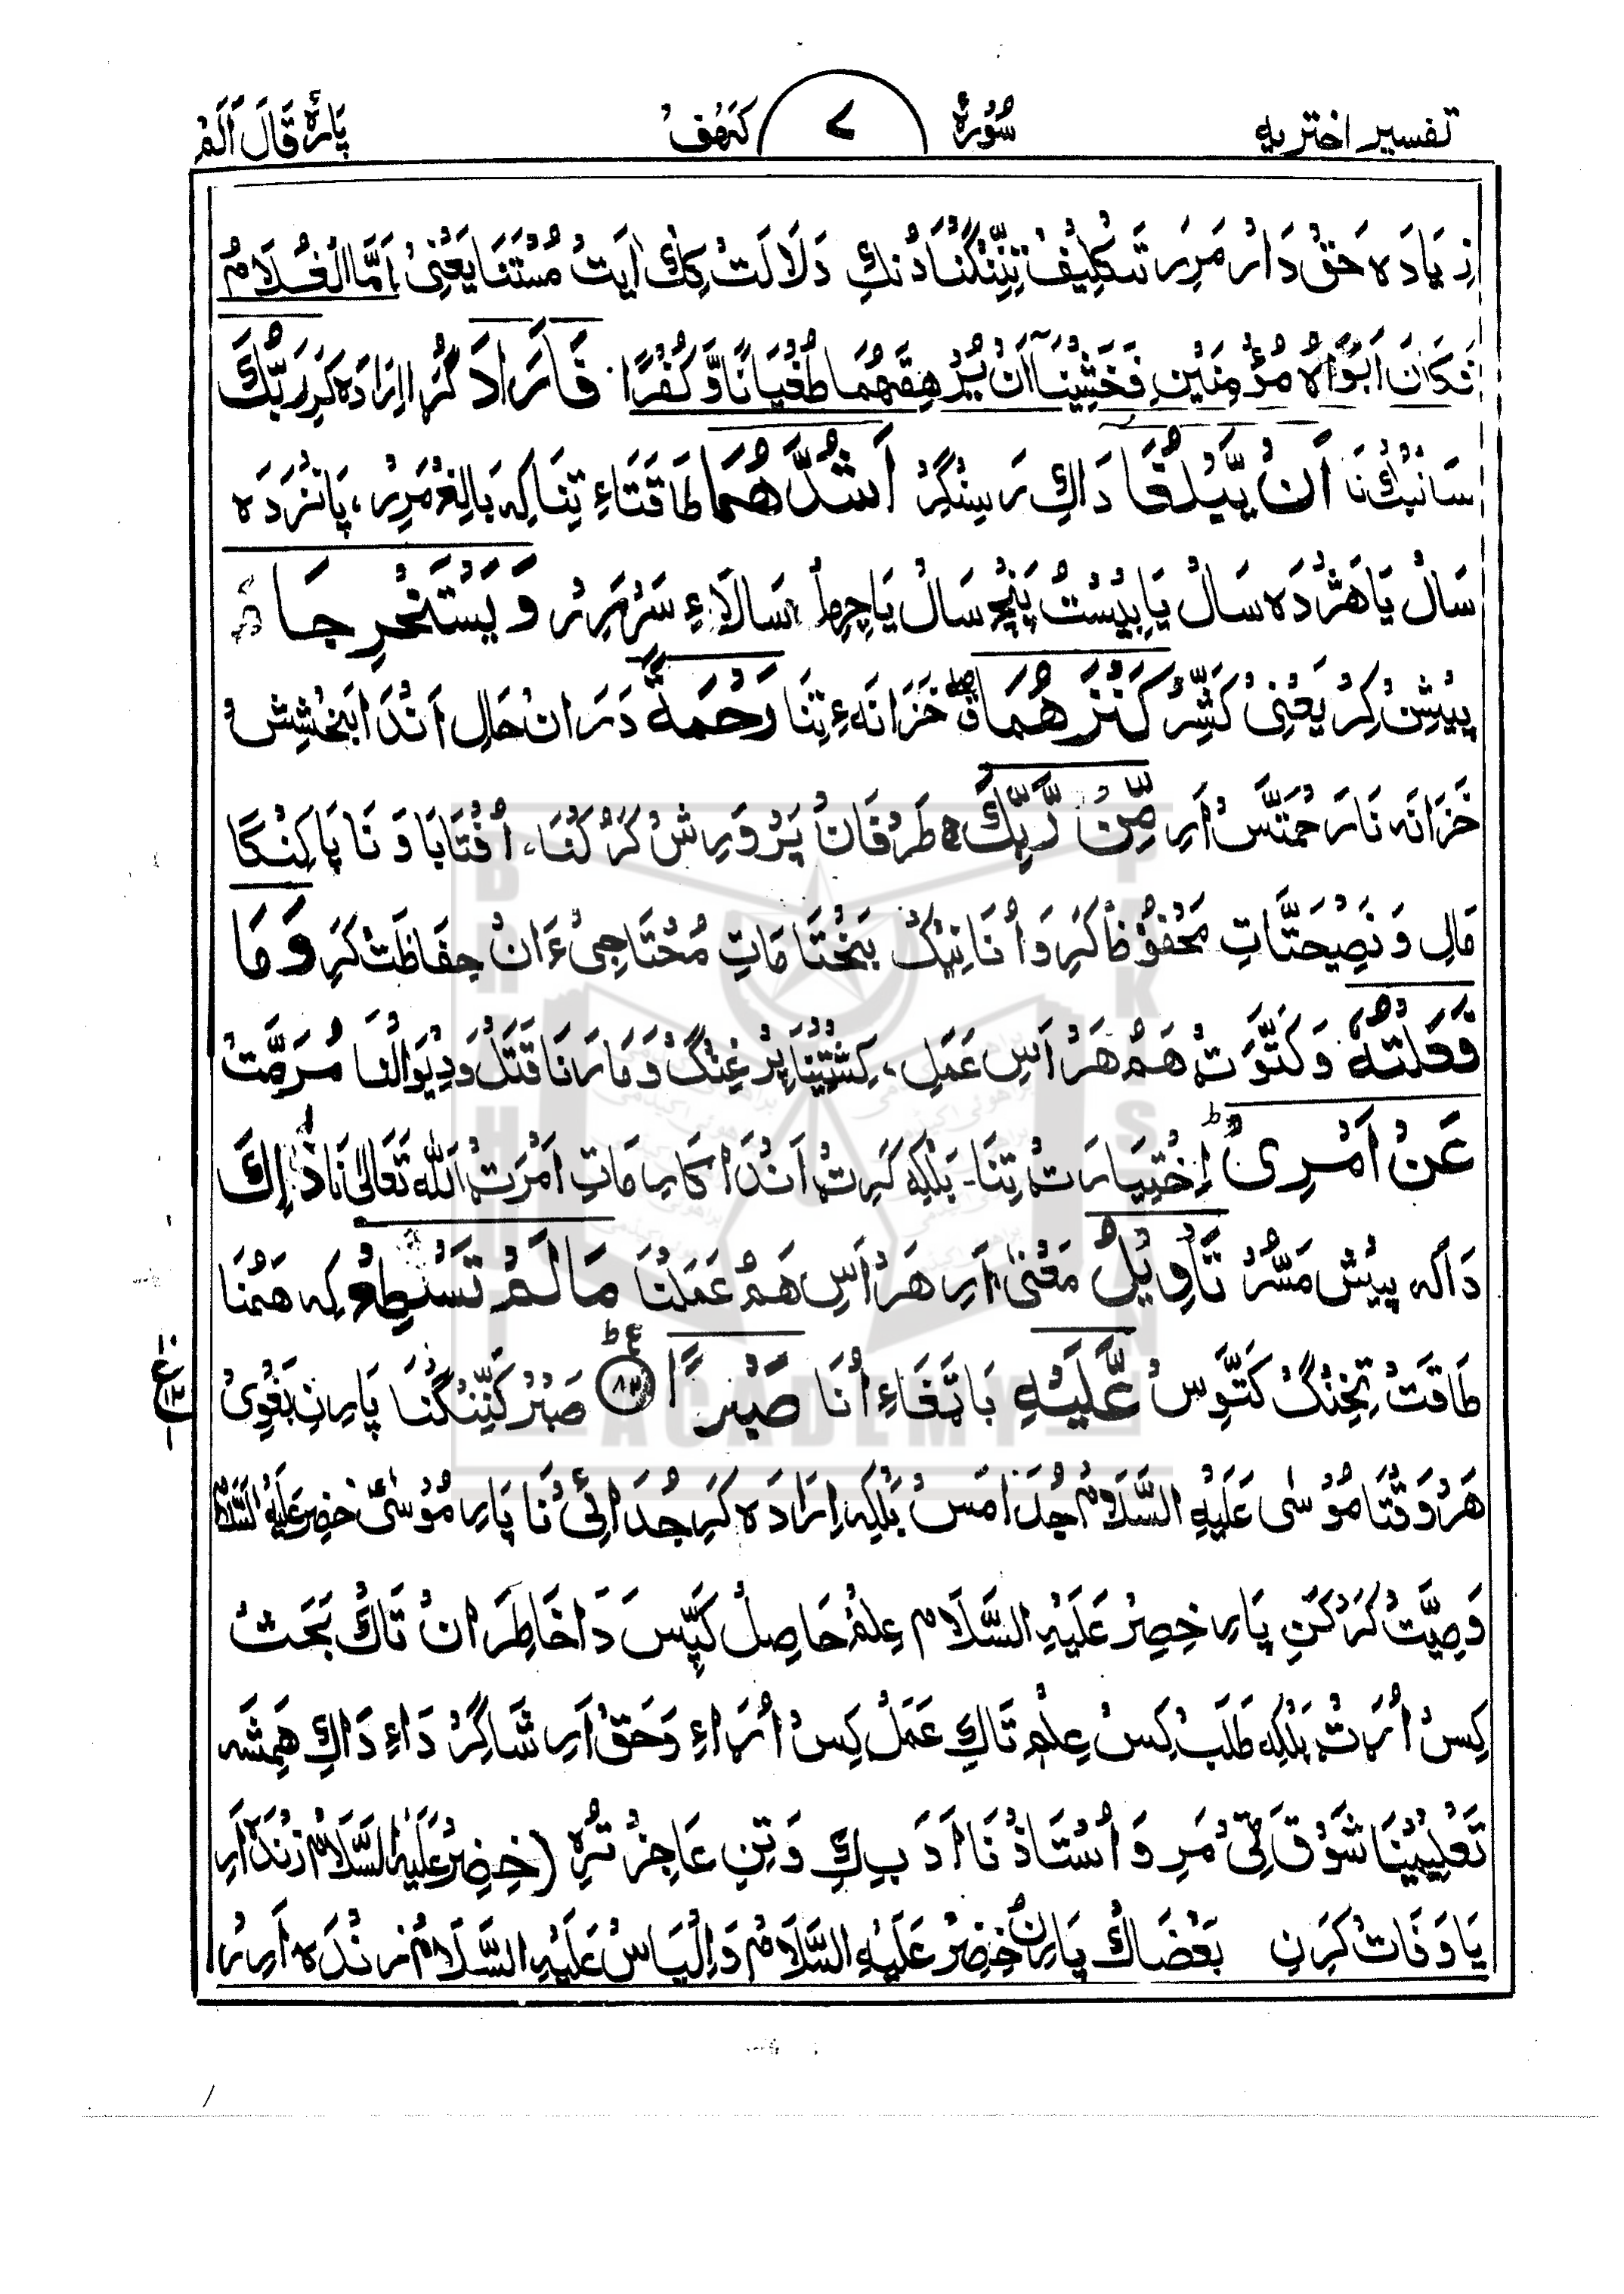 تفسیر اختریه سُوْرَۀ ٧ کَهُفْ پَارَۀ قَالَ اَلَمْ
زِیَادَه حَقْ دَارْ مَرِیر تَکلِیفْ تِنِنْگنَا دُنکِ دَلَالَتْ کِكْ اٰیَتْ مُسْتَنَا یَعْنِیْ اَمَّا الْغُلَامُ
فَكَانَ اَبَوَاهُ مُؤْمِنَيْنِ فَخَشِيْنَا اَنْ يُّرْهِقَهُمَا طُغْيَانًا وَّكُفْرًا. فَاَرَادَ گُڑا اِرَادَه کَرِ رَبُّكَ
سَانَبْكْ نَا اَنْ يَّبْلُغَا دَاكِ رَسِنْگِرْ اَشُدَّهُمَا طَاقَتَاءِ تِنَا کِه بَالِغْ مَرِرْ، پَانزدَه
سَالْ یَا هَژْدَه سَالْ یَا بِیْسْتُ پَنْچْ سَالْ یَا چِهلْ سَالَاءِ سَرْ مَرِرْ وَيَسْتَخْرِجَا
پِیْشِنْ کِرْ یَعْنِیْ کَشِّرْ كَنْزَهُمَا ق خَزَانَهءِ تِنَا رَحْمَةً دَرَانْ حَالِ اَنْدَا بَخْشِشْ
خَزَانَه نَا رَحْمَتَّسْ اَرِ مِّنْ رَّبِّكَ ج طَرْفَانْ پَرْوَرِشْ کَرُکُنَا، اُفْتَا بَاوَ نَا پَاکِنْگَا
مَالِ وَ نَصِیْحَتَّاتِ مَحْفُوْظْ کَرِ وَ اُنَا نِیْكْ بَخْتَا مَاتِ مُحْتَاجِیْءَانْ حِفَاظَتْ کَرِ وَمَا
فَعَلْتُهٗ وَ کَتَّوَتْ هَمْ هَرْ اَسِ عَمَلِ، کِشْتِیْنَا پِرْغِنْگْ وَ مَارَنَا قَتَلْ وَ دِیْوَالْنَا مُرَمَّتْ
عَنْ اَمْرِيْ ط اِخْتِیَارَتْ تِنَا۔ بَلْکِه کَرِتْ اَنْدَا کَارِ مَاتِ اَمْرَتْ اَللّٰه تَعَالٰی نَا ذٰلِكَ
دَاکه پِیْشْ مَسُّرْ تَاْوِيْلُ مَعْنٰی اَرِ هَرْ اَسِ هَمْ عَمَلْنَا مَالَمْ تَسْطِعْ کِه هَمْنَا
طَاقَتْ تِخِنْگْ کَتَّوِسْ عَّلَيْهِ بَاتْغَاءِ اُنَا صَبْرًا ط ع ٨٢ صَبْرْ کَنِّنْگْنَا پَارِنِ بَغْوِیْ
هَرْ وَقْتَا مُوْسٰی عَلَیْهِ السَّلَامْ جُدَا مَسْ بَلْکِه اِرَادَه کَرِ جُدَائِیْ نَا پَارِ مُوْسٰی خِضِرْ عَلَیْهِ السَّلَامْ
وَصِیَّتْ کَرْ کَنِ پَارِ خِضِرْ عَلَیْهِ السَّلَامْ عِلْمْ حَاصِلْ کَپَّسْ دَا خَاطِرَانْ تَاكْ بَحَثْ
کِسْ اُرَتْ بَلْکِه طَلَبْ کِسْ عِلْمْ تَاكِ عَمَلْ کِسْ اُرَاءِ وَ حَقْ اَرِ شَاگِرْدَاءِ دَاكِ هَمِشَه
تَعْلِیْمْنَا شَوْقَتِیْ مَرِ وَ اُسْتَاذْنَا اَدَبْ کِ وَ تِنِ عَاجِزْ تَرِه (خِضِرْ عَلَیْهِ السَّلَامْ زِنْدَه اَرِ
یَا وَفَاتْ کَرِنِ بَعْضَاكْ پَارِنْ خِضِرْ عَلَیْهِ السَّلَامْ وَ اِلْیَاسْ عَلَیْهِ السَّلَامْ زِنْدَه اَرِرْ